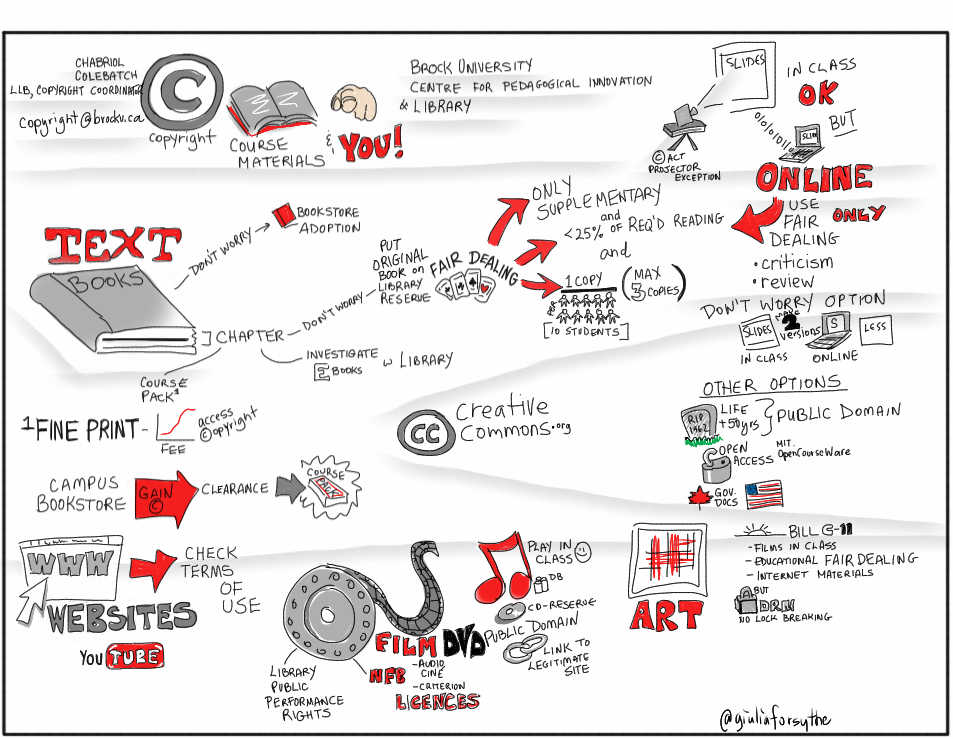 CHABRIOL
COLEBATCH
LLB, COPYRIGHT COORDINATOR
copyright@brocku.ca
©
copyright
COURSE
MATERIALS
& YOU!
BROCK UNIVERSITY
CENTRE FOR PEDAGOGICAL INNOVATION
& LIBRARY
SLIDES
© ACT
PROJECTOR
EXCEPTION
IN CLASS
OK
BUT
SLIDE
ONLINE
USE
FAIR ONLY
DEALING
• criticism
• review
TEXT
BOOKS
DON'T WORRY
BOOKSTORE
ADOPTION
CHAPTER
DON'T WORRY
PUT
ORIGINAL
BOOK ON
LIBRARY
RESERVE
FAIR DEALING
ONLY
SUPPLEMENTARY
and
<25% OF REQ'D READING
and
1 COPY
PER
[10 STUDENTS]
(MAX
3
COPIES)
INVESTIGATE
E BOOKS
w LIBRARY
COURSE
PACK¹
DON'T WORRY OPTION
SLIDES
MAKE
2
versions
S
LESS
IN CLASS
ONLINE
¹FINE PRINT -
FEE
access
©opyright
CC
Creative
Commons.org
OTHER OPTIONS
RIP
1962
LIFE
+50yrs
PUBLIC DOMAIN
OPEN
ACCESS
MIT.
OpenCourseWare
GOV.
DOCS
CAMPUS
BOOKSTORE
GAIN
©
CLEARANCE
COURSE
PACK
WWW
WEBSITES
YouTUBE
CHECK
TERMS
OF
USE
LIBRARY
PUBLIC
PERFORMANCE
RIGHTS
FILM
NFB
- AUDIO
CINE
- CRITERION
LICENCES
DVD
PLAY IN
CLASS
DB
CD-RESERVE
PUBLIC DOMAIN
LINK TO
LEGITIMATE
SITE
ART
BILL C-11
- FILMS IN CLASS
- EDUCATIONAL FAIR DEALING
- INTERNET MATERIALS
BUT
DRM
NO LOCK BREAKING
@giuliaforsythe